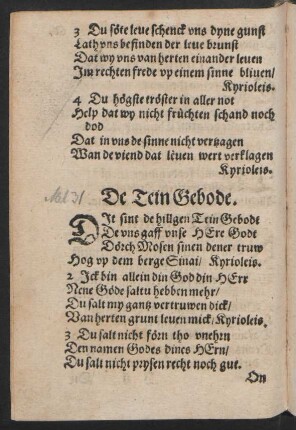 3 Du söte leue schenck vns dyne gunst
Lath vns befinden der leue brunst
Dat wy vns van herten einander leuen
Im rechten frede vp einem sinne bliuen/
Kyrioleis.
4 Du högste tröster in aller not
Help dat wy nicht früchten schand noch
dod
Dat in vns de sinne nicht vertzagen
Wan de viend dat leuen wert verklagen
Kyrioleis.
Mel 31
De Tein Gebode.
DIt sint de hilligen Tein Gebodt
De vns gaff vnse HEre Godt
Dörch Mosen sinen dener truw
Hog vp dem berge Sinai/ Kyrioleis.
2 Ick bin allein din God din HErr
Nene Göde saltu hebben mehr/
Du salt my gantz vertruwen dick/
Van herten grunt leuen mick/ Kyrioleis.
3 Du salt nicht förn tho vnehrn
Den namen Godes dines HErn/
Du salt nicht prysen recht noch gut.
On